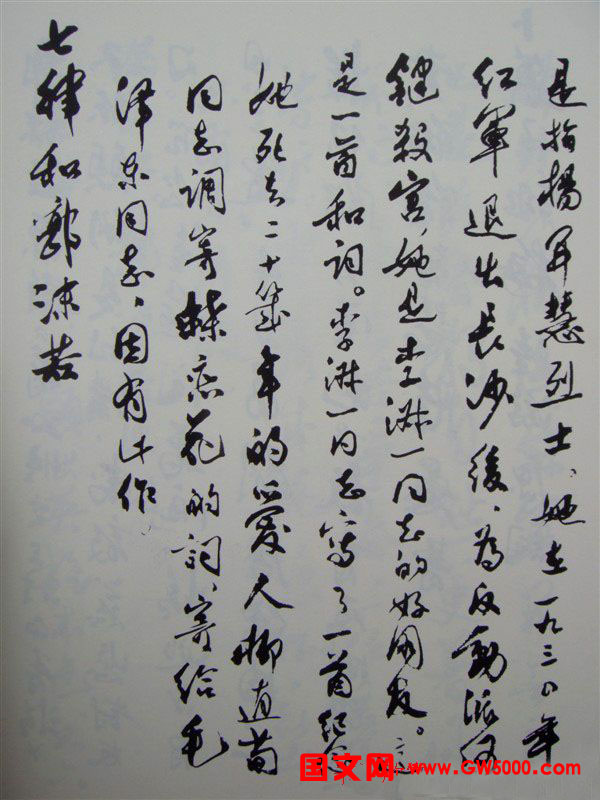 是指楊开慧烈士、她在一九三〇年
红軍退出長沙後、為反動派何
鍵殺害,她是李淑一同志的好朋友。這
是一首和詞。李淑一同志寫了一首紀念
她死去二十幾年的愛人柳直荀
同志調寄蝶恋花的詞、寄給毛
澤东同志、因有此作、
七律和郭沫若
国文网 www.GW5000.com